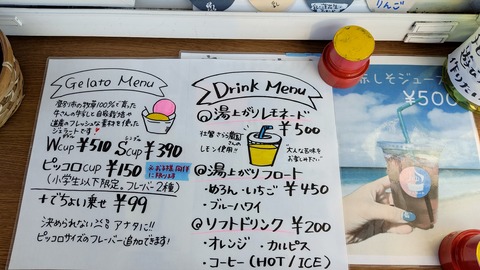 りんご
Gelato Menu
登別市の牧草100%で育った
牛さんの牛乳と自家栽培や
道産のフレッシュな素材を使った
ジェラートです
Wcup ¥510 Scup ¥390
ピッコロcup ¥150
(小学生以下限定。フレーバー2種)
+でちょい乗せ ¥99
決められないアナタに!!
ピッコロサイズのフレーバー追加できます!
Drink Menu
湯上がりレモネード
¥500
レモン使用!!
大人な苦味を
お楽しみ下さい
湯上がりフロート
・めろん・いちご ¥450
・ブルーハワイ
ソフトドリンク ¥200
・オレンジ ・カルピス
・コーヒー(HOT/ICE)
しそジュース
¥500